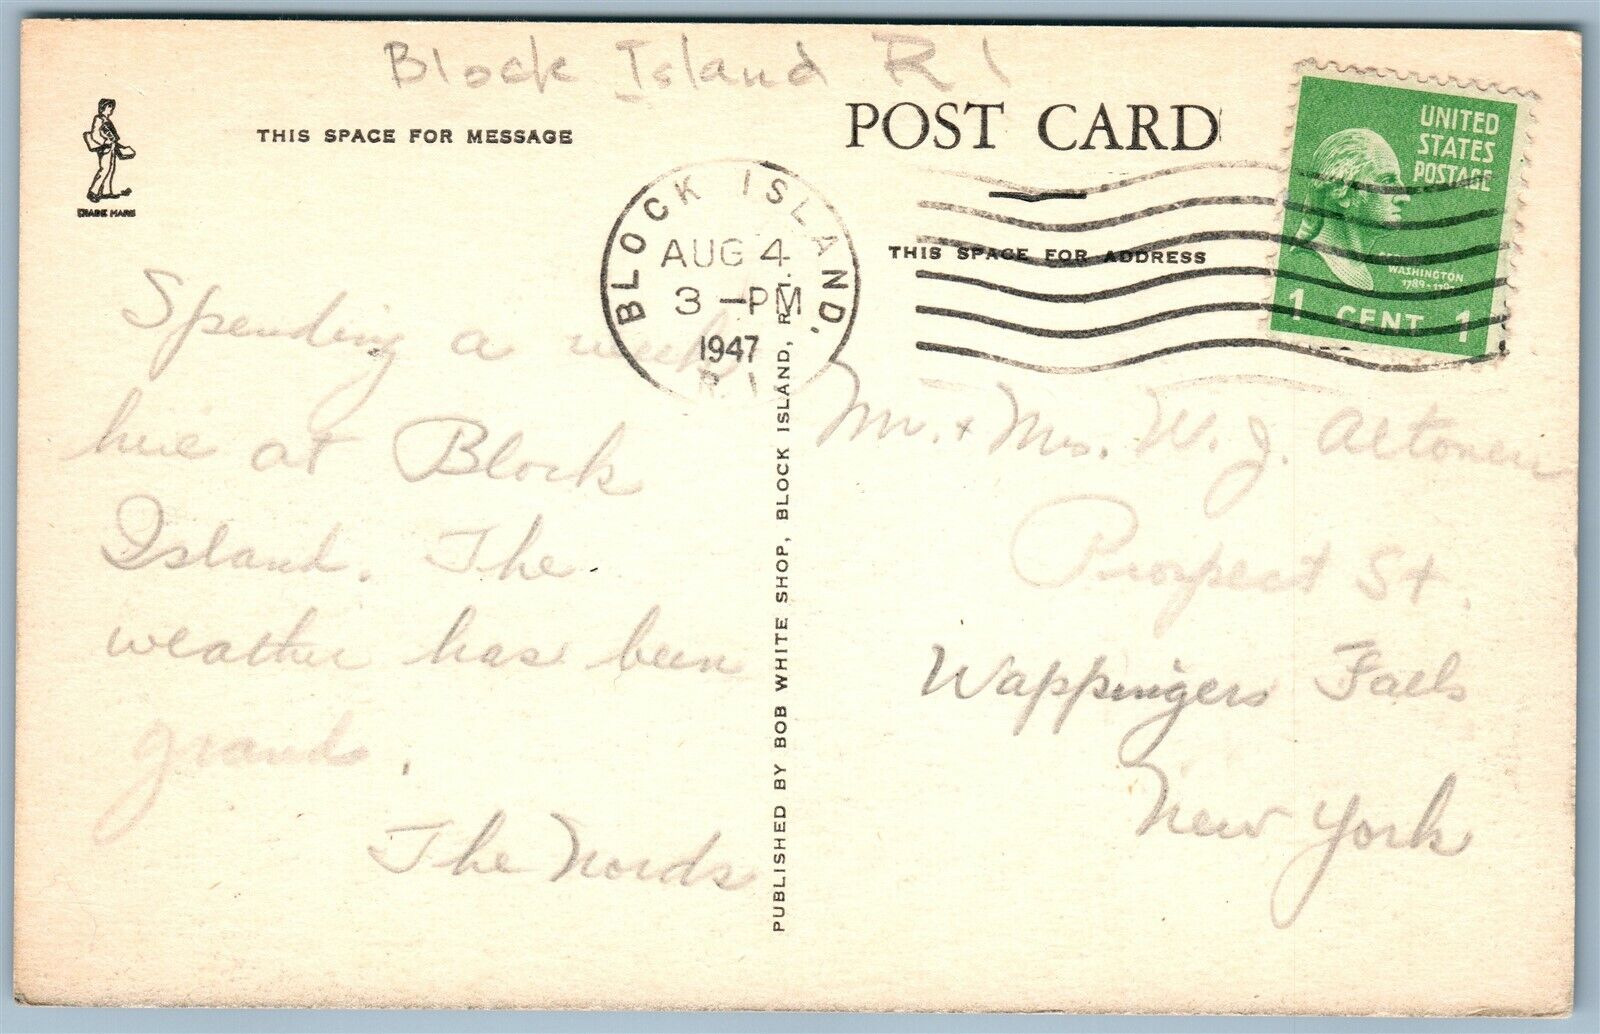 Block Island R I
TRADE MARK
THIS SPACE FOR MESSAGE
POST CARD
BLOCK ISLAND.
AUG 4
3 -PM
1947
R.I.
UNITED
STATES
POSTAGE
WASHINGTON
1789-
1 CENT 1
THIS SPACE FOR ADDRESS
Spending a week
here at Block
Island. The
weather has been
grand.
The Nords
PUBLISHED BY BOB WHITE SHOP, BLOCK ISLAND, R. I.
Mr. + Mrs. W. J. Altonen
Prospect St.
Wappingers Falls
New York